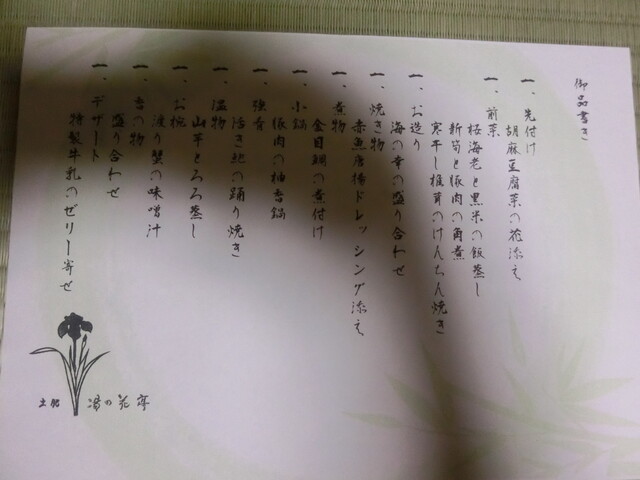 御品書き
一、先付け
胡麻豆腐菜の花添え
一、前菜
桜海老と黒米の飯蒸し
新筍と豚肉の角煮
寒干し椎茸のけんちん焼き
一、お造り
海の幸の盛り合わせ
一、焼き物
赤魚唐揚ドレッシング添え
一、煮物
金目鯛の煮付け
一、小鍋
豚肉の柚香鍋
一、強肴
活き鮑の踊り焼き
一、温物
山芋とろろ蒸し
一、お椀
渡り蟹の味噌汁
一、香の物
盛り合わせ
一、デザート
特製牛乳のゼリー寄せ
土肥 湯の花亭